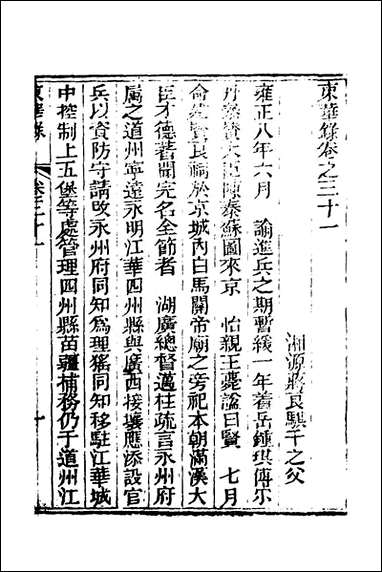 東華錄卷之三十一
湘源蔣良騏千之父
雍正八年六月　諭進兵之期暫緩一年着岳鍾琪傅尔
丹參贊大臣陳泰蘇圖來京　怡親王薨諡曰賢　七月
命建賢良祠於京城內白馬關帝廟之旁祀本朝滿漢大
臣才德著聞完名全節者　湖廣總督邁柱疏言永州府
屬之道州寧遠永明江華四州縣與廣西接壤應添設官
兵以資防守請改永州府同知為理猺同知移駐江華城
中控制上五堡等處管理四州縣苗疆捕務仍于道州江
東華錄
卷三十一
一